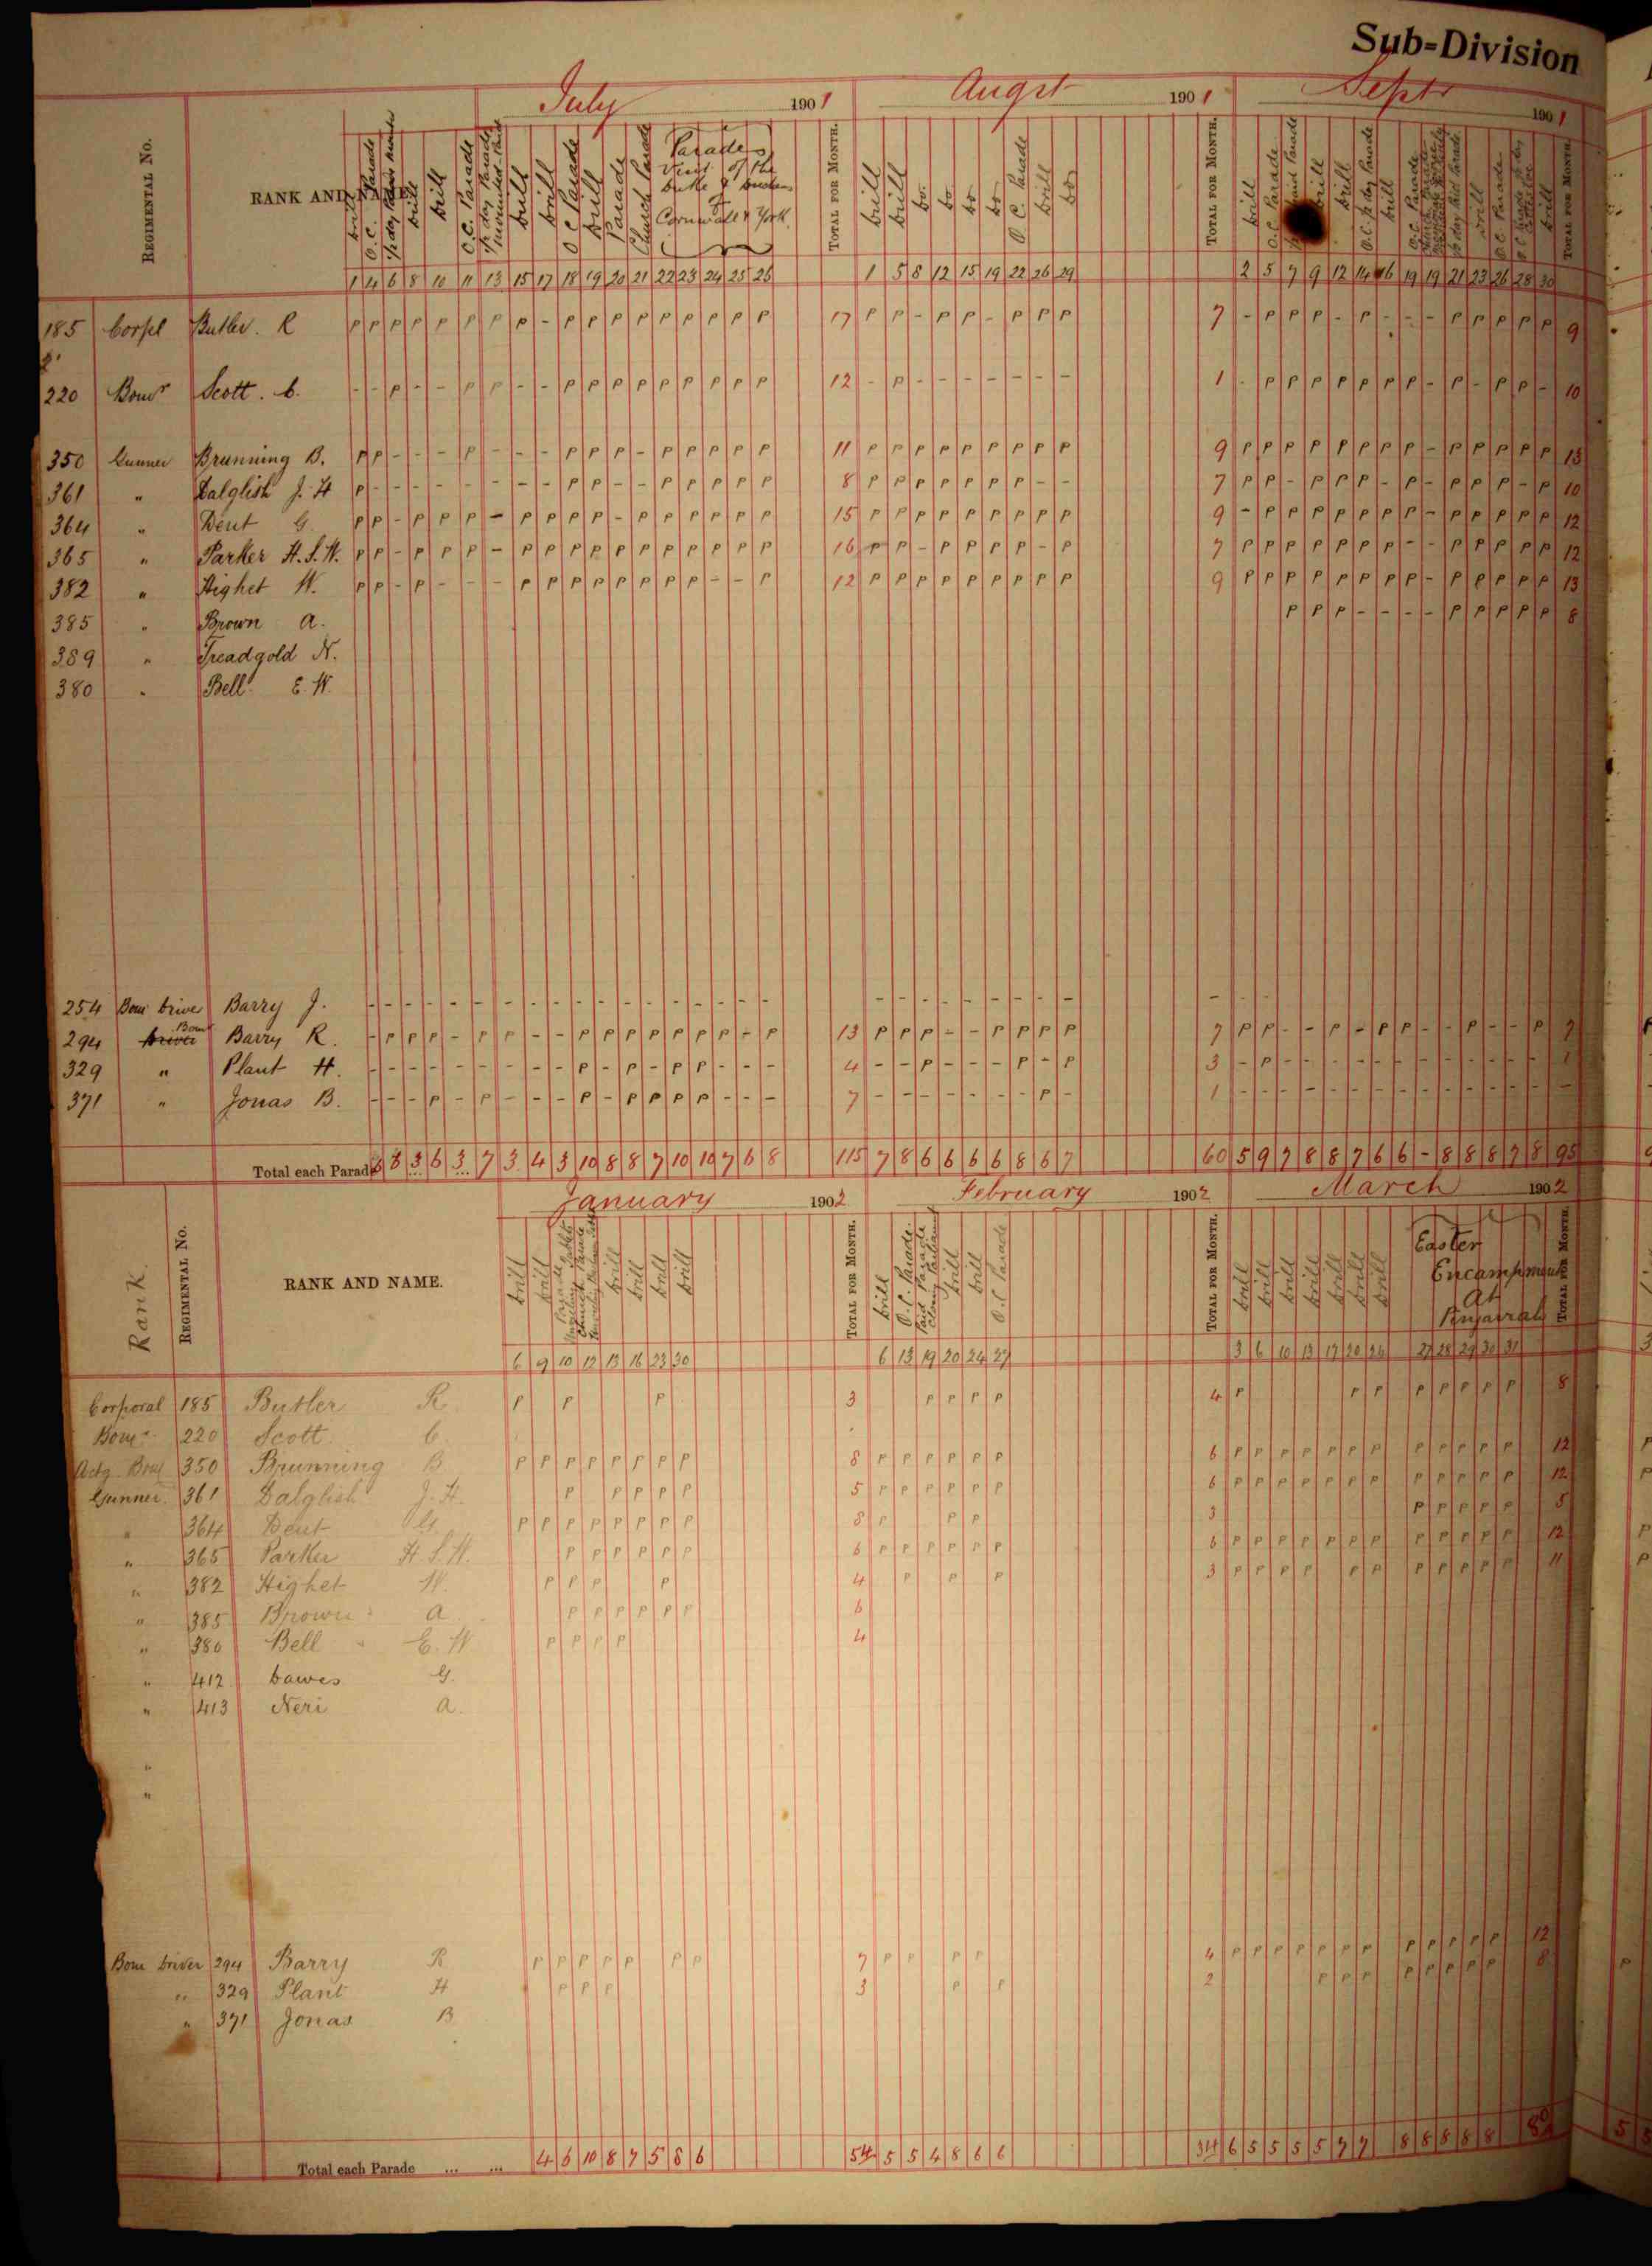 Sub=Division
July 1901 Augst 1901 Sept 1901
REGIMENTAL No. RANK AND NAME. drill O.C. Parade 1/2 day Paid Parade drill drill O.C. Parade 1/2 day Parade mounted Parade drill drill O C Parade drill Parade Church Parade Parades Visit of the Duke & Duchess of Cornwall & York. TOTAL FOR MONTH. drill drill do. do do do O.C. Parade drill do TOTAL FOR MONTH. drill O.C. Parade drill drill O.C. 1/2 day Parade drill O.C. Parade 1/2 day Paid Parade drill O.C. Parade drill TOTAL FOR MONTH.
1 4 6 8 10 11 13 15 17 18 19 20 21 22 23 24 25 26 1 5 8 12 15 19 22 26 29 2 5 7 9 12 14 16 19 19 21 23 26 28 30
185 Corpl Butler. R P P P P P P P P - P P P P P P P P P 17 P P - P P - P P P 7 - P P P - P - - - P P P P P 9
220 Bomr Scott. C. - - P - - P P - - P P P P P P P P P 12 - P - - - - - - - 1 - P P P P P P P - P - P P - 10
350 Gunner Brunning B. P P - - - P - - - P P P - P P P P P 11 P P P P P P P P P 9 P P P P P P P P - P P P P P 13
361 " Dalglish J. H P - - - - - - - - P P - - P P P P P 8 P P P P P P P - - 7 P P - P P P - P - P P P - P 10
364 " Dent G. P P - P P P - P P P P - P P P P P P 15 P P P P P P P P P 9 - P P P P P P P - P P P P P 12
365 " Parker H.S.W. P P - P P P - P P P P P P P P P P P 16 P P - P P P P - P 7 P P P P P P P - - P P P P P 12
382 " Highet W. P P - P - - - P P P P P P P P - - P 12 P P P P P P P P P 9 P P P P P P P P - P P P P P 13
385 " Brown A. P P P - - - - P P P P P 8
389 " Treadgold N.
380 " Bell E. W.
254 Bom Driver Barry J. - - - - - - - - - - - - - - - - - - - - - - - - - - - - - - -
294 Driver Bomr Barry R. - P P P - P P - - P P P P P P P - P 13 P P P - - P P P P 7 P P - - P - P P - - P - - P 7
329 " Plant H. - - - - - - - - - P - P - P P - - - 4 - - P - - - P - P 3 - P - - - - - - - - - - - - 1
371 " Jonas B. - - - P - P - - - P - P P P P - - - 7 - - - - - - - P - 1 - - - - - - - - - - - - - - -
Total each Parade 8 8 3 6 3 7 3 4 3 10 8 8 7 10 10 7 6 8 115 7 8 6 6 6 6 8 6 7 60 5 9 7 8 8 7 6 6 - 8 8 8 7 8 95
January 1902 February 1902 March 1902
Rank. REGIMENTAL No. RANK AND NAME. drill drill drill drill drill drill TOTAL FOR MONTH. drill O.C. Parade. Paid Parade Closing Parliament drill drill O.C. Parade TOTAL FOR MONTH. drill drill drill drill drill drill drill Easter Encampment At Pinjarrah TOTAL FOR MONTH.
6 9 10 12 13 16 23 30 6 13 19 20 24 27 3 6 10 13 17 20 24 27 28 29 30 31
Corporal 185 Butler R P P P 3 P P P P 4 P P P P P P P P 8
Bomr 220 Scott C.
Actg Bom 350 Brunning B P P P P P P P P 8 P P P P P P 6 P P P P P P P P P P P P 12
Gunner. 361 Dalglish J. H. P P P P P 5 P P P P P P 6 P P P P P P P P P P P P 12
" 364 Dent G. P P P P P P P P 8 P P P 3 P P P P P 5
" 365 Parker H S. W. P P P P P P 6 P P P P P P 6 P P P P P P P P P P P P 12
" 382 Highet W. P P P P 4 P P P 3 P P P P P P P P P P P 11
" 385 Brown A P P P P P P 6
" 380 Bell E. W P P P P 4
" 412 Dawes G.
" 413 Neri A.
"
"
Bom Driver 294 Barry R P P P P P P P 7 P P P P 4 P P P P P P P P P P P P 12
" 329 Plant H P P P 3 P P 2 P P P P P P P P 8
" 371 Jonas B
Total each Parade ... ... 4 6 10 8 7 5 8 6 54 5 5 4 8 6 6 34 6 5 5 5 5 7 7 8 8 8 8 8 80